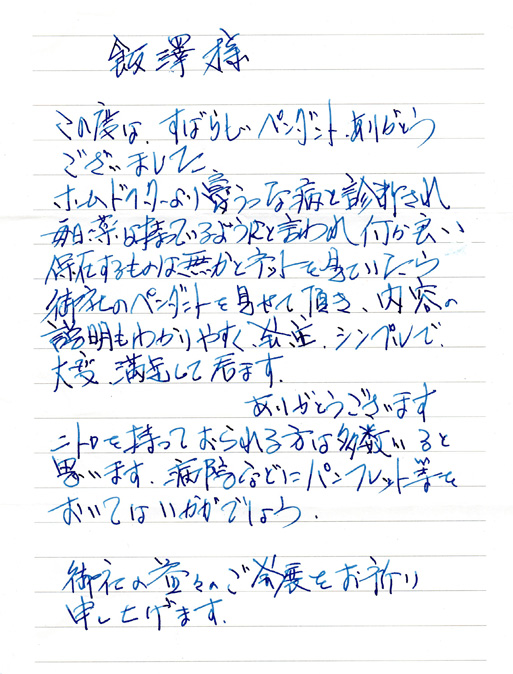 飯澤様
この度は、すばらしいペンダント、ありがとう
ございました
ホームドクターより うつな病と診断され
毎日薬は持っているようにと言われ何か良い
保在するものは無かとネットを見ていたら
御社のペンダントを見せて頂き、内容の
説明もわかりやすく、発注、シンプルで、
大変、満足して居ます。
ありがとうございます
ニトロを持っておられる方は多数いると
思います。病院などにパンフレット等を
おいてはいかがでしょう。
御社の益々のご発展をお祈り
申し上げます。